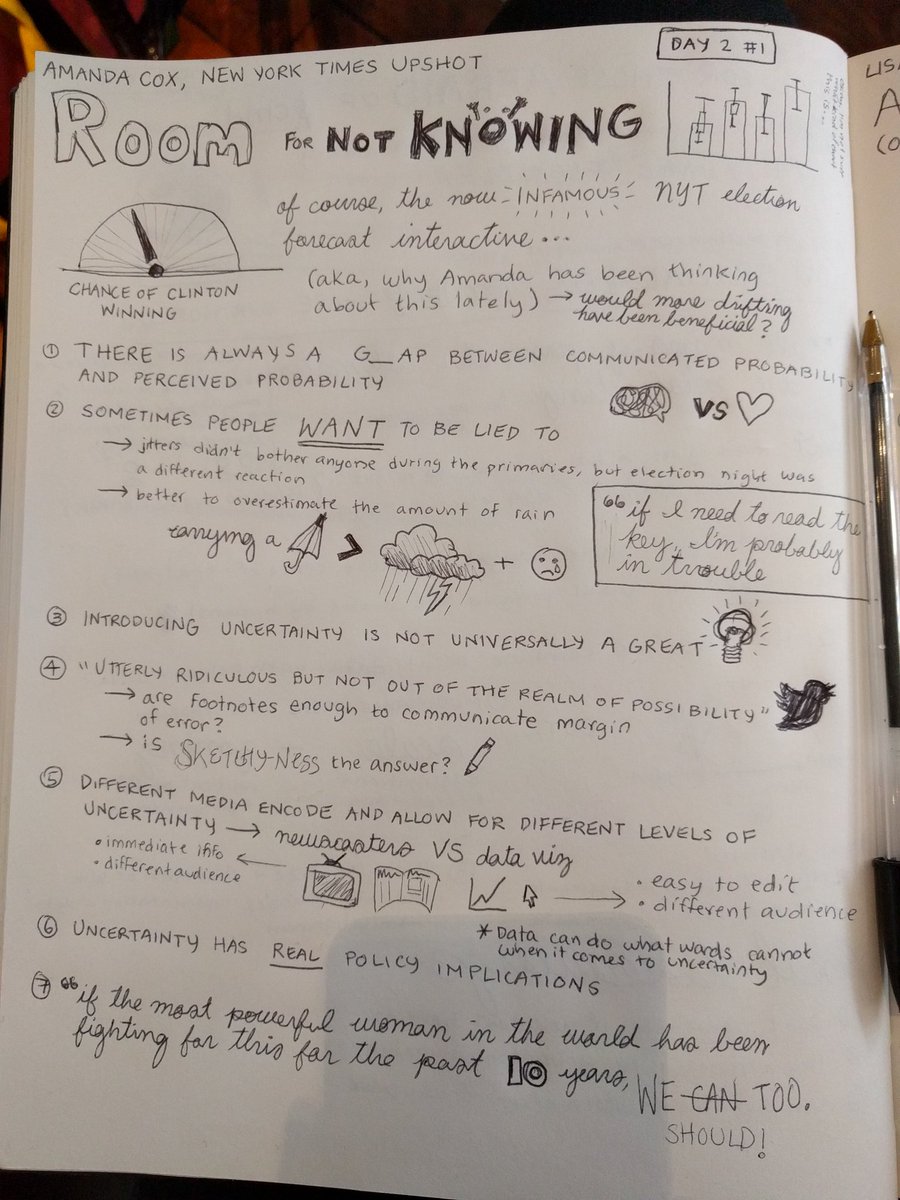 DAY 2 #1
AMANDA COX, NEW YORK TIMES UPSHOT
ROOM FOR NOT KNOWING
of course, the now INFAMOUS NYT election
forecast interactive...
(aka, why Amanda has been thinking
about this lately) → would more drifting
have been beneficial?
CHANCE OF CLINTON
WINNING
① THERE IS ALWAYS A G_AP BETWEEN COMMUNICATED PROBABILITY
AND PERCEIVED PROBABILITY
VS
② SOMETIMES PEOPLE WANT TO BE LIED TO
→ jitters didn't bother anyone during the primaries, but election night was
a different reaction
→ better to overestimate the amount of rain
carrying a > +
"if I need to read the
key, I'm probably
in trouble
③ INTRODUCING UNCERTAINTY IS NOT UNIVERSALLY A GREAT
④ "UTTERLY RIDICULOUS BUT NOT OUT OF THE REALM OF POSSIBILITY"
→ are footnotes enough to communicate margin
of error?
→ is SKETCHY-NESS the answer?
⑤ DIFFERENT MEDIA ENCODE AND ALLOW FOR DIFFERENT LEVELS OF
UNCERTAINTY → newscasters VS data viz
• immediate info
• different audience
• easy to edit
• different audience
* Data can do what words cannot
when it comes to uncertainty
⑥ UNCERTAINTY HAS REAL POLICY IMPLICATIONS
⑦ "if the most powerful woman in the world has been
fighting for this for the past 10 years,
WE CAN TOO.
SHOULD!
LIS
A
(O